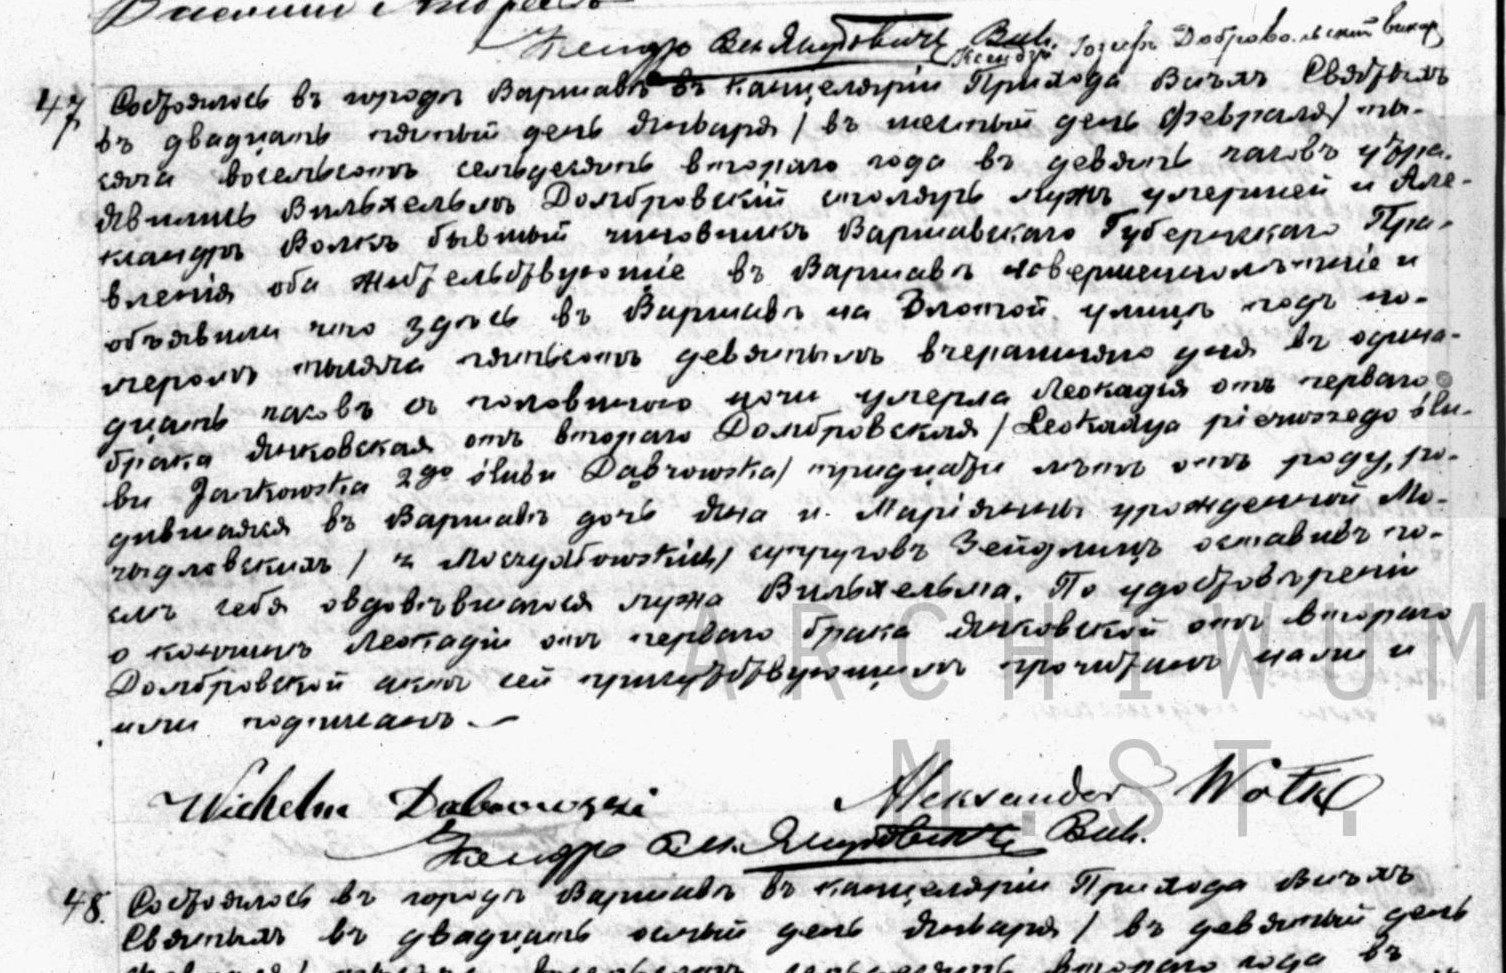 Ксендзъ Вик. Іозефъ Добровольскій викар
47 Состоялось въ городѣ Варшавѣ въ канцеляріи Прихода Всѣхъ Святыхъ
въ двадцать пятый день Января / въ шестый день февраля / ты-
сяча восемьсотъ семьдесятъ втораго года въ девять часовъ утра.
Явились Вильхельмъ Домбровскій столяръ мужъ умершей и Але-
ксандръ Волкъ бывшый чиновникъ Варшавскаго Губернскаго Пра-
вленія оба жительствующіе въ Варшавѣ совершеннолѣтніе и
объявили что здѣсь въ Варшавѣ на Злотой улицѣ подъ но-
меромъ тысяча пятьсотъ девятымъ вчерашняго дня въ одина-
дцать часовъ съ половиною ночи умерла Леокадія отъ перваго
брака Янковская отъ втораго Домбровская / Leokadya pierwszego ślu-
bu Jankowska 2go ślubu Dąbrowska / тридцати лѣтъ отъ роду, ро-
дившаяся въ Варшавѣ дочь Яна и Маріянны урожденной Мо-
чыдловскихъ / z Moczydłowskich / супруговъ Зейдлицъ оставивъ по-
слѣ себя овдовѣвшагося мужа Вильхельма. По удостовѣреніи
о кончинѣ Леокадіи отъ перваго брака Янковской отъ втораго
Домбровской актъ сей присутствующимъ прочитанъ нами и
ими подписанъ. —
Wilhelm Dabrowski Aleksander Wołk
Ксендзъ Вик.
48. Состоялось въ городѣ Варшавѣ въ канцеляріи Прихода Всѣхъ
Святыхъ въ двадцать осмый день Января / въ девятый день
втораго года въ
ARCHIWUM
M.ST.